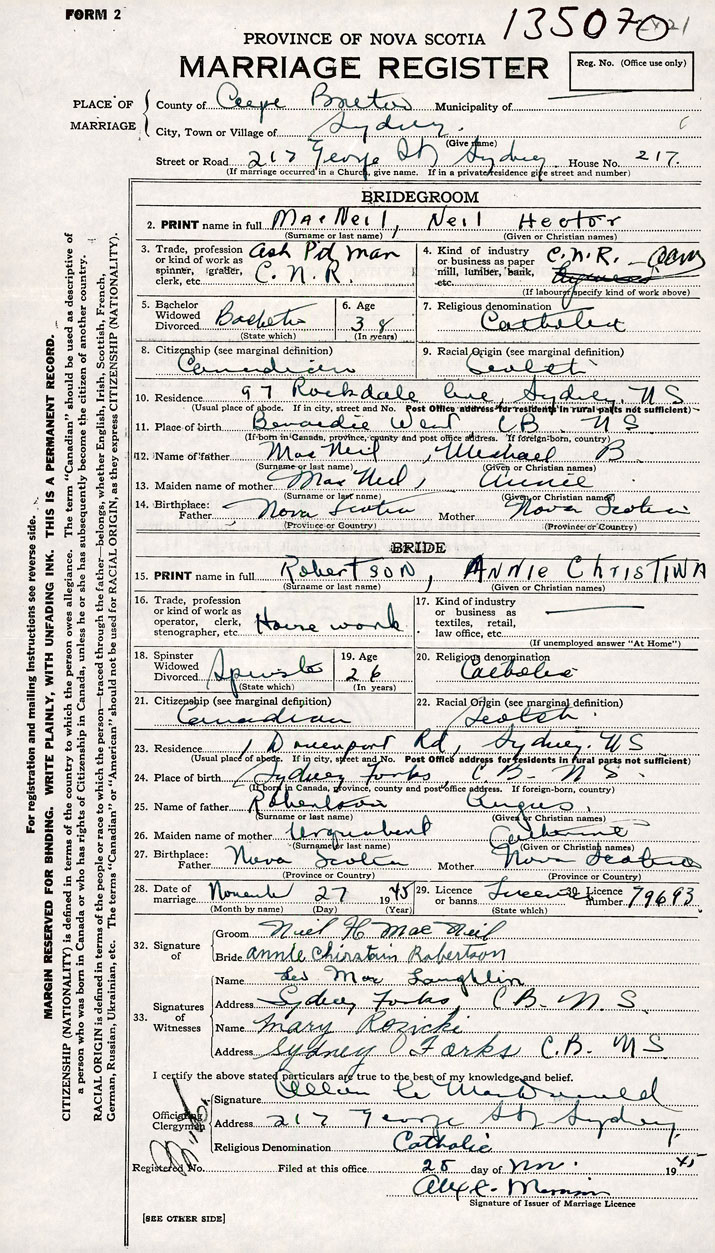 FORM 2
135070
PROVINCE OF NOVA SCOTIA
MARRIAGE REGISTER
Reg. No. (Office use only)
PLACE OF MARRIAGE
County of Cape Breton Municipality of
City, Town or Village of Sydney
(Give name)
Street or Road 217 George St Sydney House No. 217.
(If marriage occurred in a Church, give name. If in a private residence give street and number)
BRIDEGROOM
2. PRINT name in full MacNeil, Neil Hector
(Surname or last name) (Given or Christian names)
3. Trade, profession or kind of work as spinner, grader, clerk, etc. Ash Pit man C.N.R.
4. Kind of industry or business as paper mill, lumber, bank, etc. C.N.R.
(If labourer specify kind of work above)
5. Bachelor Widowed Divorced Bachelor
(State which)
6. Age 38
(In years)
7. Religious denomination Catholic
8. Citizenship (see marginal definition) Canadian
9. Racial Origin (see marginal definition) Scotch
10. Residence 97 Rockdale Ave, Sydney. N S
(Usual place of abode. If in city, street and No. Post Office address for residents in rural parts not sufficient)
11. Place of birth Benacadie West C B. N S.
(If born in Canada, province, county and post office address. If foreign-born, country)
12. Name of father MacNeil, Michael B.
(Surname or last name) (Given or Christian names)
13. Maiden name of mother MacNeil, Annie
(Surname or last name) (Given or Christian names)
14. Birthplace: Father Nova Scotia Mother Nova Scotia
(Province or Country) (Province or Country)
BRIDE
15. PRINT name in full Robertson, Annie Christina
(Surname or last name) (Given or Christian names)
16. Trade, profession or kind of work as operator, clerk, stenographer, etc. House work
17. Kind of industry or business as textiles, retail, law office, etc.
(If unemployed answer "At Home")
18. Spinster Widowed Divorced Spinster
(State which)
19. Age 26
(In years)
20. Religious denomination Catholic
21. Citizenship (see marginal definition) Canadian
22. Racial Origin (see marginal definition) Scotch
23. Residence 1 Davenport Rd, Sydney. N S
(Usual place of abode. If in city, street and No. Post Office address for residents in rural parts not sufficient)
24. Place of birth Sydney Forks, C.B. N S.
(If born in Canada, province, county and post office address. If foreign-born, country)
25. Name of father Robertson Angus
(Surname or last name) (Given or Christian names)
26. Maiden name of mother Urquhart Catherine
(Surname or last name) (Given or Christian names)
27. Birthplace: Father Nova Scotia Mother Nova Scotia
(Province or Country) (Province or Country)
28. Date of marriage November 27 1945
(Month by name) (Day) (Year)
29. Licence or banns License
(State which)
30. Licence number 79693.
32. Signature of
Groom Neil H MacNeil
Bride Annie Chirstain Robertson
33. Signatures of Witnesses
Name Leo MacLaughlin
Address Sydney Forks, C B. N. S.
Name Mary Rozicki
Address Sydney Forks C.B. N S
I certify the above stated particulars are true to the best of my knowledge and belief.
Officiating Clergyman
Signature MacDonald
Address 217 George St Sydney.
Religious Denomination Catholic
Registered No. Filed at this office 28 day of Nov. 1945
Signature of Issuer of Marriage Licence
[SEE OTHER SIDE]
For registration and mailing instructions see reverse side.
MARGIN RESERVED FOR BINDING. WRITE PLAINLY, WITH UNFADING INK. THIS IS A PERMANENT RECORD.
CITIZENSHIP (NATIONALITY) is defined in terms of the country to which the person owes allegiance. The term "Canadian" should be used as descriptive of
a person who was born in Canada or who has rights of Citizenship in Canada, unless he or she has subsequently become the citizen of another country.
RACIAL ORIGIN is defined in terms of the people or race to which the person—traced through the father—belongs, whether English, Irish, Scottish, French,
German, Russian, Ukrainian, etc. The terms "Canadian" or "American" should not be used for RACIAL ORIGIN, as they express CITIZENSHIP (NATIONALITY).